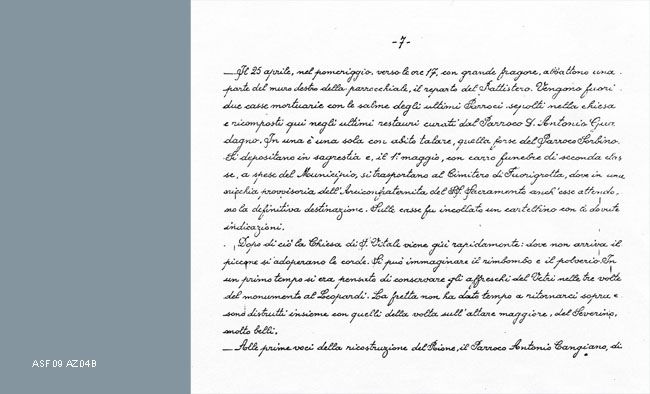 -7-
—Il 25 aprile, nel pomeriggio, verso le ore 17, con grande fragore, abbattono una
parte del muro destro della parrocchiale, il reparto del Battistero. Vengono fuori
due casse mortuarie con le salme degli ultimi Parroci sepolti nella chiesa
e ricomposti qui negli ultimi restauri curati dal Parroco D. Antonio Gua
dagno. In una è una sola con abito talare, quella forse del Parroco Sorbino.
Si depositano in sagrestia e, il 1° maggio, con carro funebre di seconda clas
se, a spese del Municipio, si trasportano al Cimitero di Fuorigrotta, dove in una
nicchia provvisoria dell'Arciconfraternita del SS. Sacramento anch'esse attendo,
no la definitiva destinazione. Sulle casse fu incollato un cartellino con le dovute
indicazioni.
Dopo di ciò la Chiesa di S. Vitale viene giù rapidamente: dove non arriva il
piccone si adoperano le corde. Si può immaginare il rimbombo e il polverio. In
un primo tempo si era pensato di conservare gli affreschi del Vitri nelle tre volte
del monumento al Leopardi. La fretta non ha dato tempo a ritornarci sopra e
sono distrutti insieme con quelli della volta sull'altare maggiore, del Severino,
molto belli.
—Alle prime voci della ricostruzione del Rione, il Parroco Antonio Cangiano, di
ASF09 AZ04B